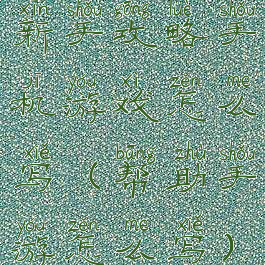 xīn shǒu gōng lüè shǒu
新手攻略手
jī yóu xì zěn me
机游戏怎么
xiě bāng zhù shǒu
写(帮助手
yóu zěn me xiě
游怎么写)